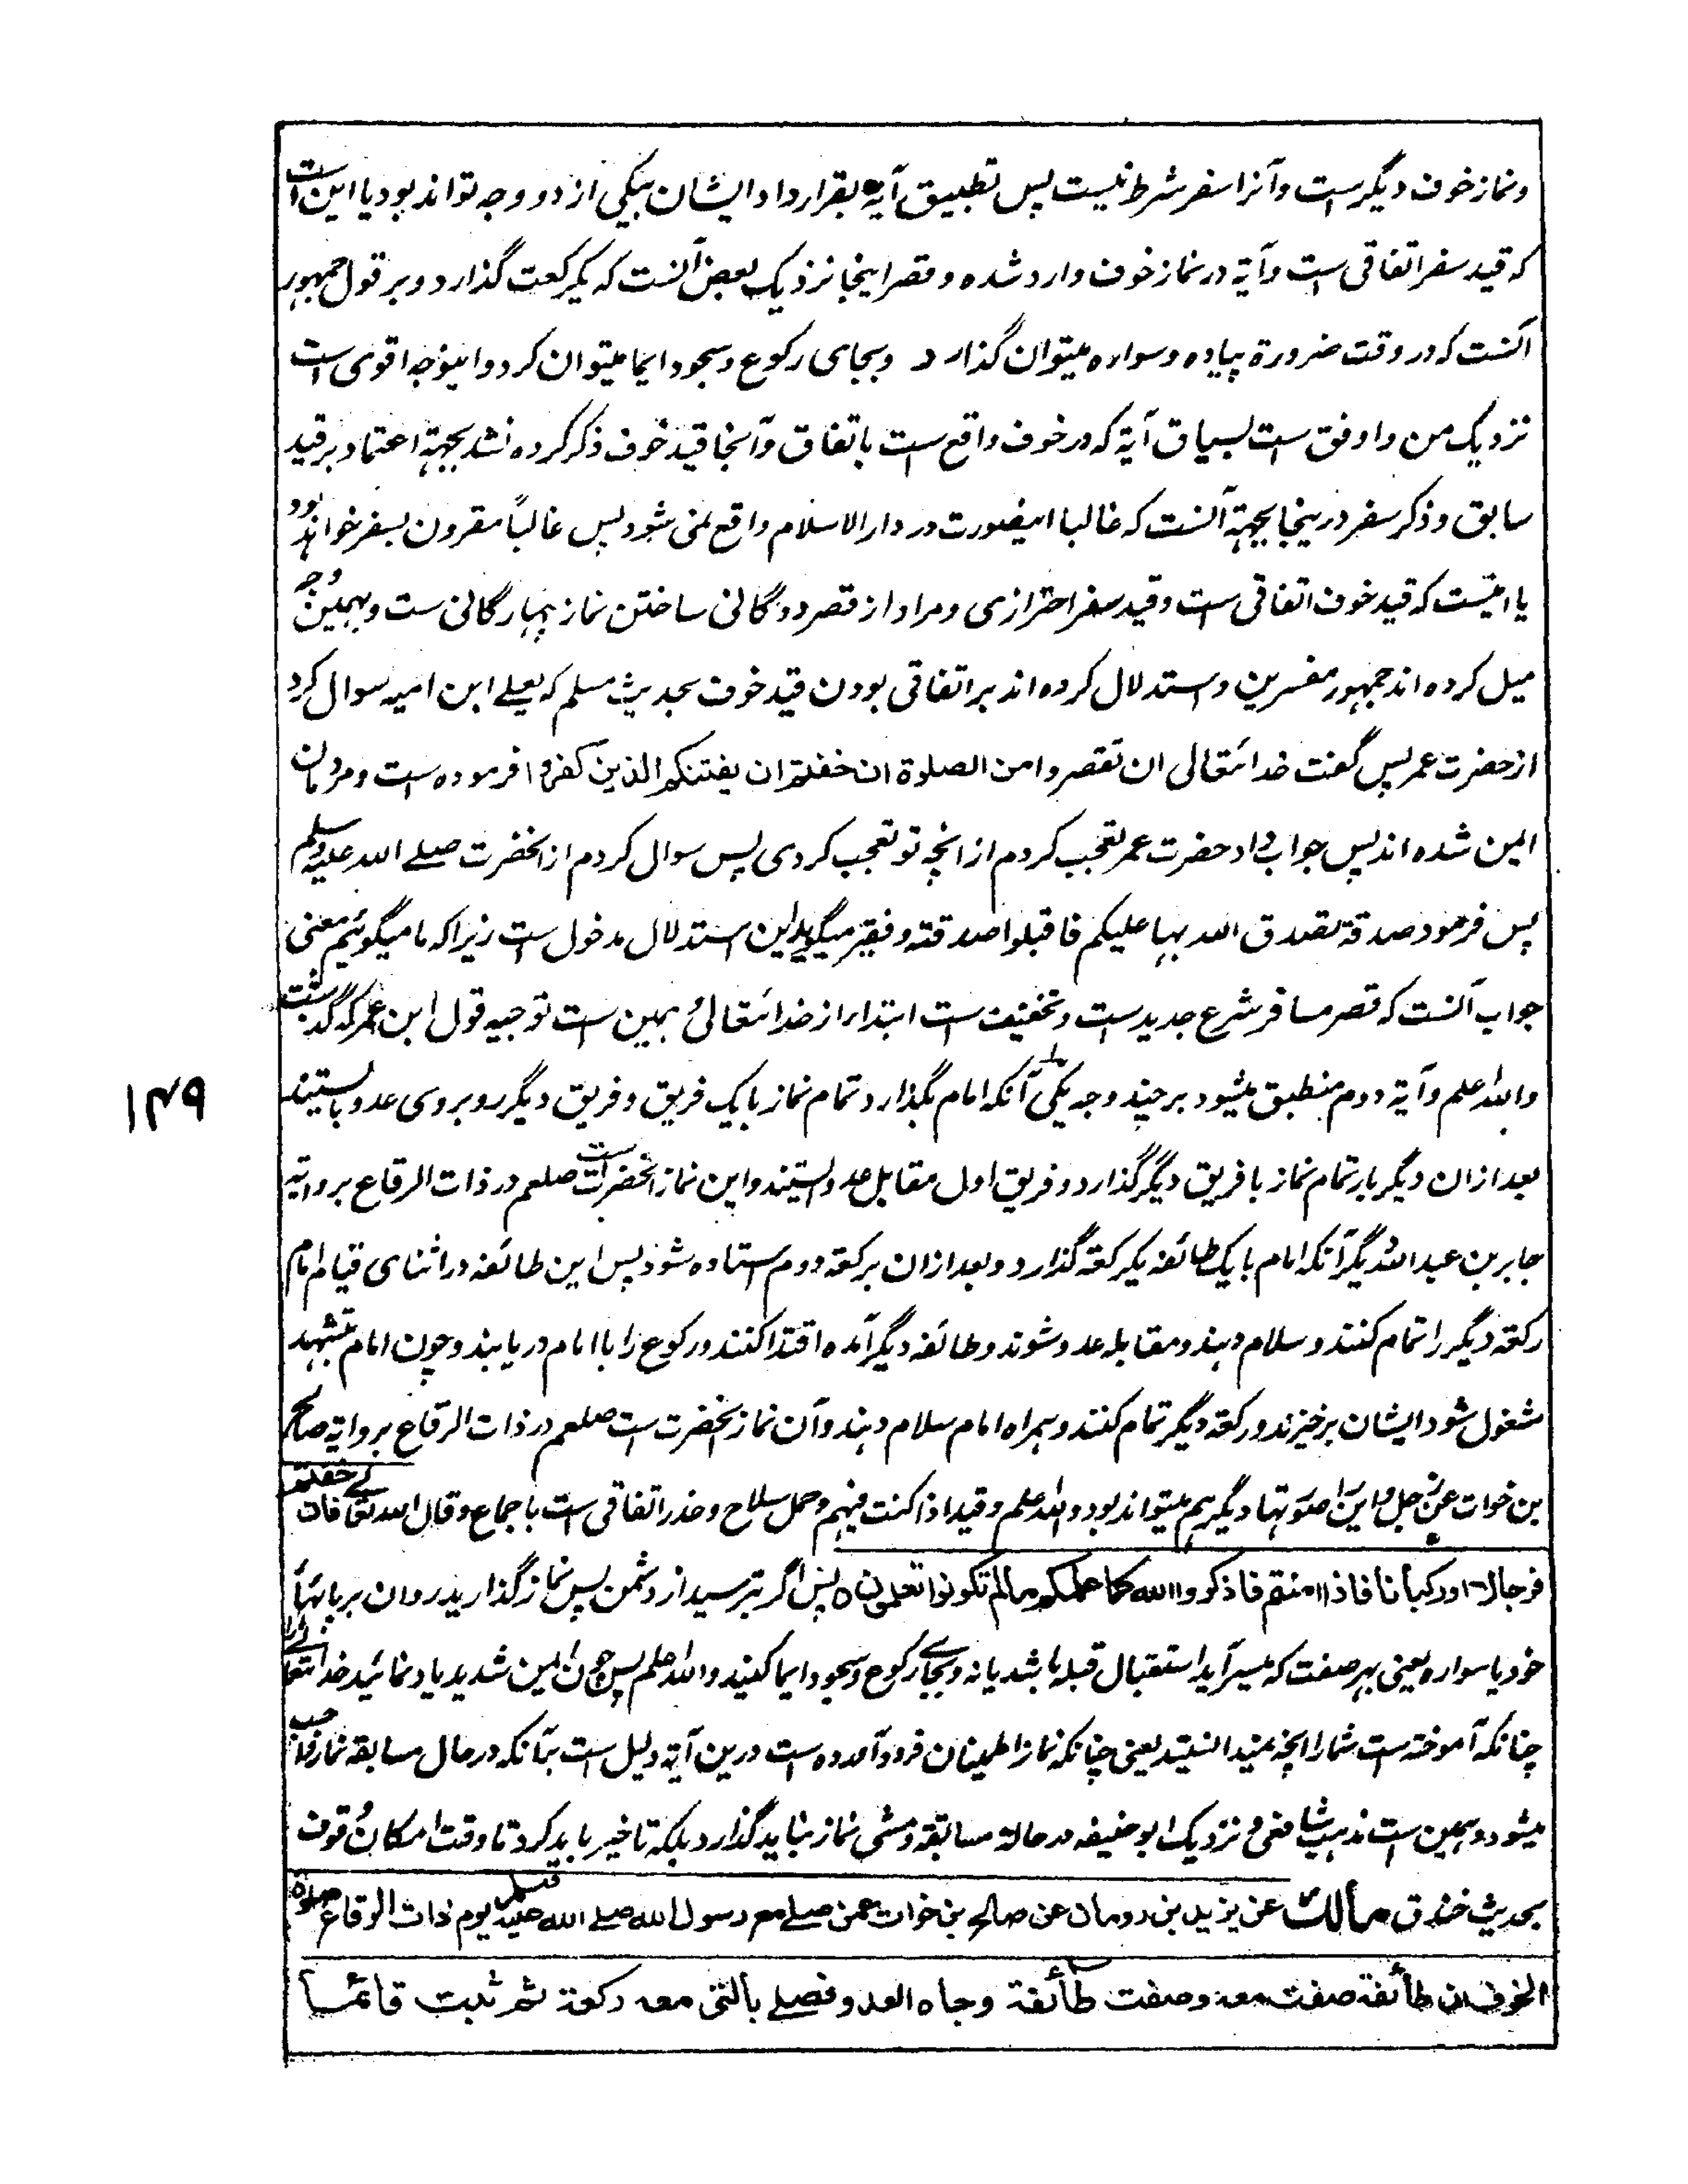 ونماز خوف دیگرست وآنرا سفر شرط نیست پس تطبیق آیه بقرارداد ایشان بیکی از دو وجه تواند بود یا این است
که قید سفر اتفاقی ست وآیة در نماز خوف وارد شده و قصر اینجا نزدیک بعض آنست که یکرکعت گذارد و بر قول جمهور
آنست که در وقت ضرورة پیاده وسواره میتوان گذارد و بجای رکوع وسجود ایما میتوان کرد واینوجه اقوی ست
نزدیک من واوفق ست بسیاق آیة که در خوف واقع ست باتفاق وآنجا قید خوف ذکر کرده نشد بجهة اعتماد بر قید
سابق وذکر سفر درینجا بجهة آنست که غالبا اینصورت در دار الاسلام واقع نمی شود پس غالباً مقرون بسفر خواهد بود
یا اینست که قید خوف اتفاقی ست وقید سفر احترازی ومراد از قصر دوگانی ساختن نماز چهارگانی ست وبهمین وجه
میل کرده اند جمهور مفسرین واستدلال کرده اند بر اتفاقی بودن قید خوف بحدیث مسلم که یعلے ابن امیه سوال کرد
از حضرت عمر پس گفت خدا تعالی ان تقصروا من الصلوة ان خفتم ان یفتنکم الذین کفروا فرموده ست ومردمان
امین شده اند پس جواب داد حضرت عمر تعجب کردم از انچه تو تعجب کردی پس سوال کردم از آنحضرت صلے الله علیه وسلم
پس فرمود صدقة تصدق الله بها علیکم فاقبلوا صدقته وفقیر میگوید این استدلال مدخول ست زیراکه ما میگوئیم معنی
جواب آنست که قصر مسافر شرع جدیدست وتخفیف ست ابتداء از خدا تعالیٰ همین ست توجیه قول ابن عمر که گذشت
والله اعلم وآیة دوم منطبق میشود بر چند وجه یکی آنکه امام بگذارد تمام نماز با یک فریق وفریق دیگر روبروی عدو بایستند
بعد ازان دیگر بار تمام نماز با فریق دیگر گذارد وفریق اول مقابل عدو ایستند واین نماز آنحضرت ست صلعم در ذات الرقاع بروایة
جابر بن عبد الله دیگر آنکه امام با یک طائفه یکرکعة گذارد وبعد ازان برکعة دوم استاده شود پس این طائفه در اثنای قیام امام
رکعة دیگر را تمام کنند وسلام دهند ومقابله عدو شوند وطائفه دیگر آمده اقتدا کنند ورکوع را با امام دریابند وچون امام بتشهد
مشغول شود ایشان برخیزند ورکعة دیگر تمام کنند وهمراه امام سلام دهند وآن نماز آنحضرت ست صلعم در ذات الرقاع بروایة صالح
بن خوات عن رجل واین را صورتها دیگر هم میتواند بود والله اعلم وقید اذا کنت فیهم وحمل سلاح وحذر اتفاقی ست باجماع وقال الله تعالے فان خفتم
فرجالا او رکبانا فاذا امنتم فاذکروا الله کما علمکم مالم تکونوا تعلمون پس اگر بترسید از دشمن پس نماز گذارید روان بر پایهاے
خود یا سواره یعنی بهر صفت که میسر آید استقبال قبله باشد یا نه وبجاے رکوع وسجود ایما کنید والله اعلم پس چون امین شدید یاد نمائید خدا تعالے را
چنانکه آموخته ست شمارا انچه نمیدانستید یعنی چنانکه نماز اطمینان فرود آمده ست درین آیة دلیل ست بآنکه در حال مسابقه نماز واجب
میشود وهمین ست مذهب شافعی ونزدیک ابو حنیفه در حالة مسابقة ومشی نماز نباید گذارد بلکه تاخیر باید کرد تا وقت امکان وقوف
بحدیث خندق مالک عن یزید بن رومان عن صالح بن خوات عمن صلے مع رسول الله صلے الله علیه وسلم یوم ذات الرقاع صلوة
الخوف ان طائفة صفت معه وصفت طائفة وجاه العدو فصلے بالتی معه رکعة ثم ثبت قائما
۱۴۹